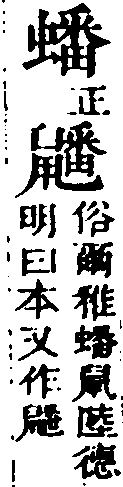 蟠正䶕
俗爾雅蟠鼠陸德
明曰本又作䶕